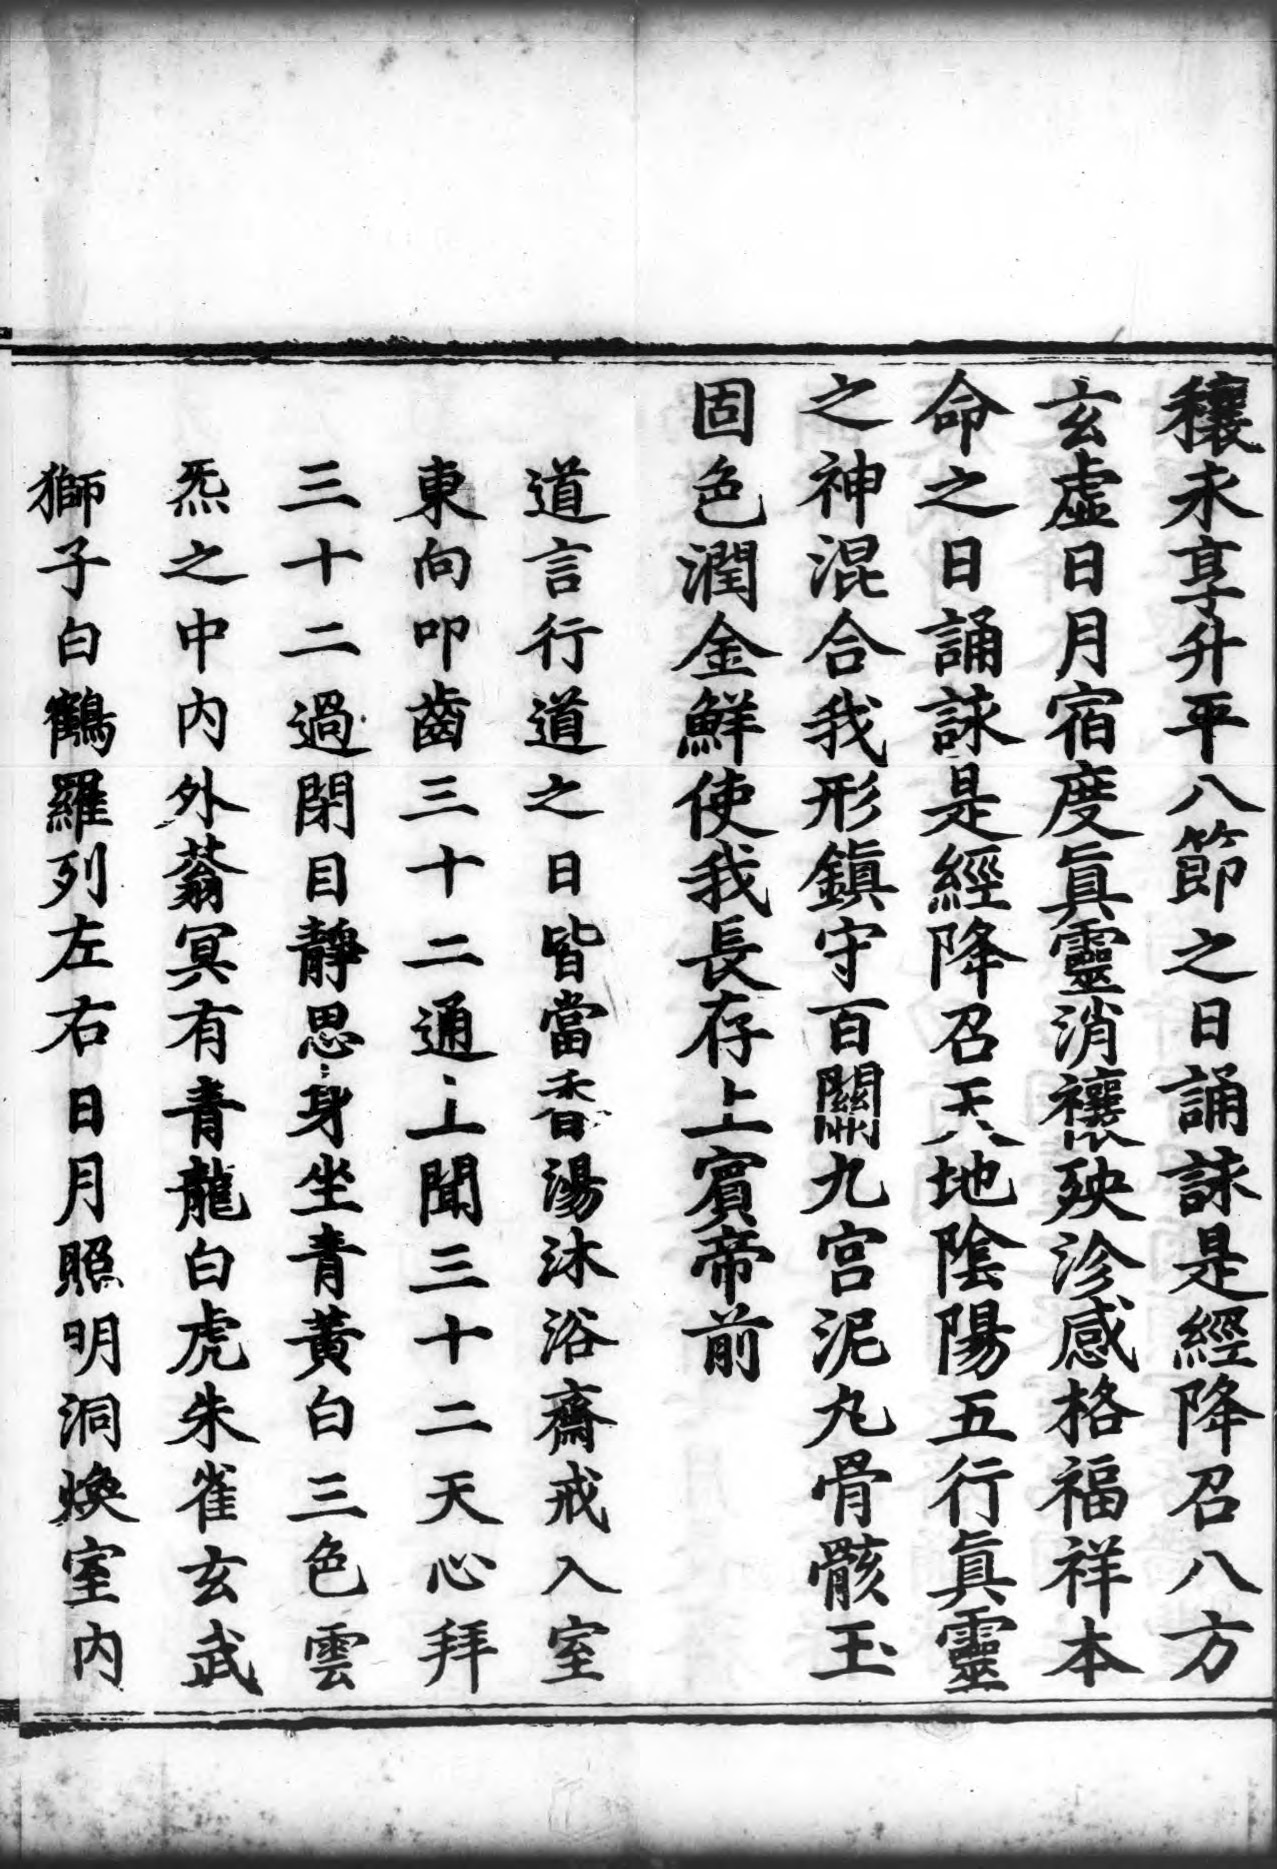 穰永享升平八節之日誦詠是經降召八方
玄虛日月宿度眞靈消禳殃沴感格福祥本
命之日誦詠是經降召天地陰陽五行眞靈
之神混合我形鎮守百關九宮泥丸骨骸玉
固色潤金鮮使我長存上賓帝前
道言行道之日皆當香湯沐浴齋戒入室
東向叩齒三十二通上聞三十二天心拜
三十二過閉目靜思身坐青黃白三色雲
炁之中內外蓊冥有青龍白虎朱雀玄武
獅子白鶴羅列左右日月照明洞煥室內